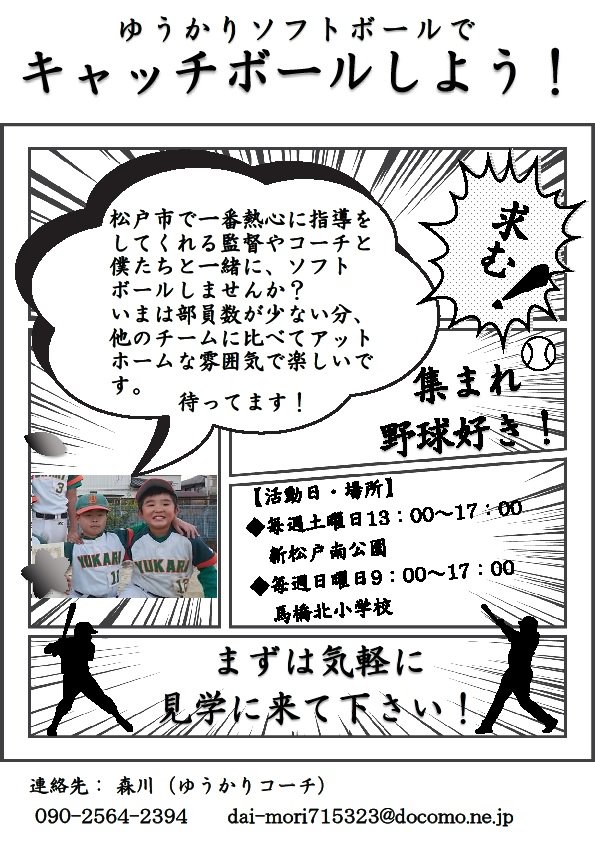 ゆうかりソフトボールで
キャッチボールしよう！
松戸市で一番熱心に指導を
してくれる監督やコーチと
僕たちと一緒に、ソフト
ボールしませんか？
いまは部員数が少ない分、
他のチームに比べてアット
ホームな雰囲気で楽しいで
す。
待ってます！
求む！
集まれ
野球好き！
3
YUKARI
11
YUKARI
12
【活動日・場所】
◆毎週土曜日13：00～17：00
新松戸南公園
◆毎週日曜日9：00～17：00
馬橋北小学校
まずは気軽に
見学に来て下さい！
連絡先： 森川（ゆうかりコーチ）
090-2564-2394 dai-mori715323@docomo.ne.jp